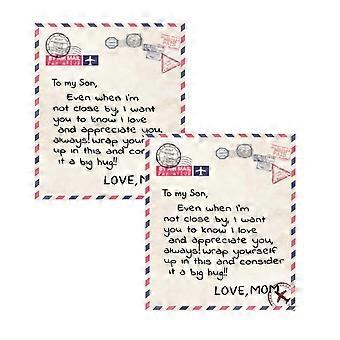 BY AIR MAIL
PAR AVION
To my Son,
Even when i'm
not close by, i want
you to know i love
and appreciate you
always! wrap yourself
up in this and consider
it a big hug!!
LOVE, M
BY AIR MAIL
PAR AVION
To my Son,
Even when i'm
not close by, i want
you to know i love
and appreciate you,
always! wrap yourself
up in this and consider
it a big hug!!
LOVE, MOM